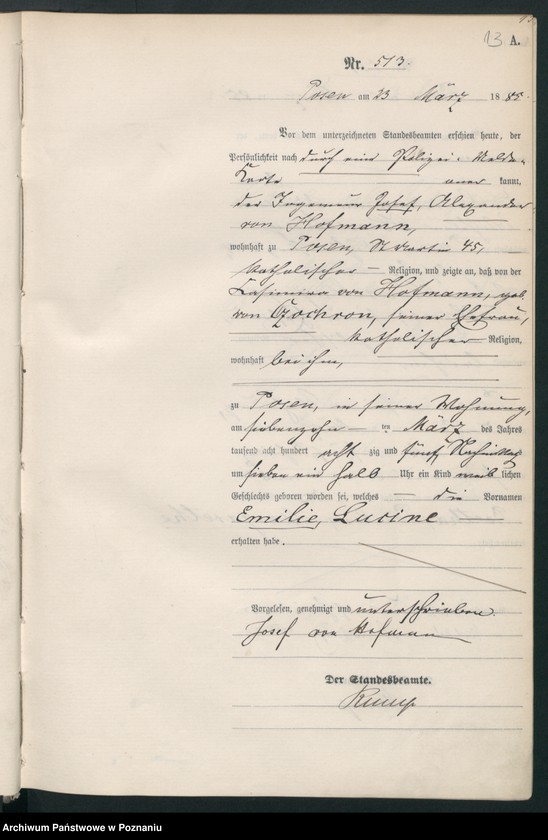 13 A.
Nr. 513.
Posen am 23 März 1885.
Vor dem unterzeichneten Standesbeamten erschien heute, der
Persönlichkeit nach durch eine Polizei-Melde-
Karte anerkannt,
der Ingenieur Josef, Alexander
von Hofmann,
wohnhaft zu Posen, St Martin 45,
katholischer Religion, und zeigte an, daß von der
Kasimira von Hofmann, geb.
von, seiner Ehefrau,
katholischer Religion,
wohnhaft bei ihm,
zu Posen, in seiner Wohnung,
am siebenzehn ten März des Jahres
tausend acht hundert achtzig und fünf Nachmittag
um sieben ein halb Uhr ein Kind weiblichen
Geschlechts geboren worden sei, welches die Vornamen
Emilie, Lucine
erhalten habe.
Vorgelesen, genehmigt und unterschrieben.
Josef von Hofmann
Der Standesbeamte.
Archiwum Państwowe w Poznaniu